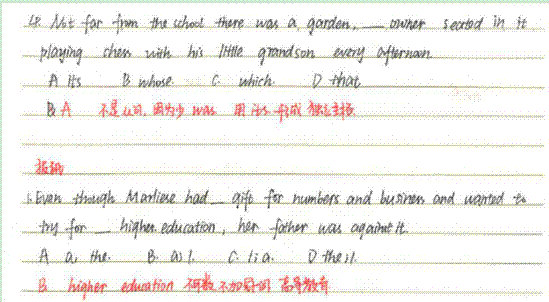 48. Not far from the school there was a garden, __ owner seated in it
playing chess with his little grandson every afternoon.
A its B whose C. which D that
B A 不是从句, 因为少 was 用 its 形成 独立主格

1. Even though Marliese had __ gift for numbers and business and wanted to
try for __ higher education, her father was against it.
A a, the. B. a, \. C. \, a. D the, \.
B higher education 不可数 不加冠词 高等教育